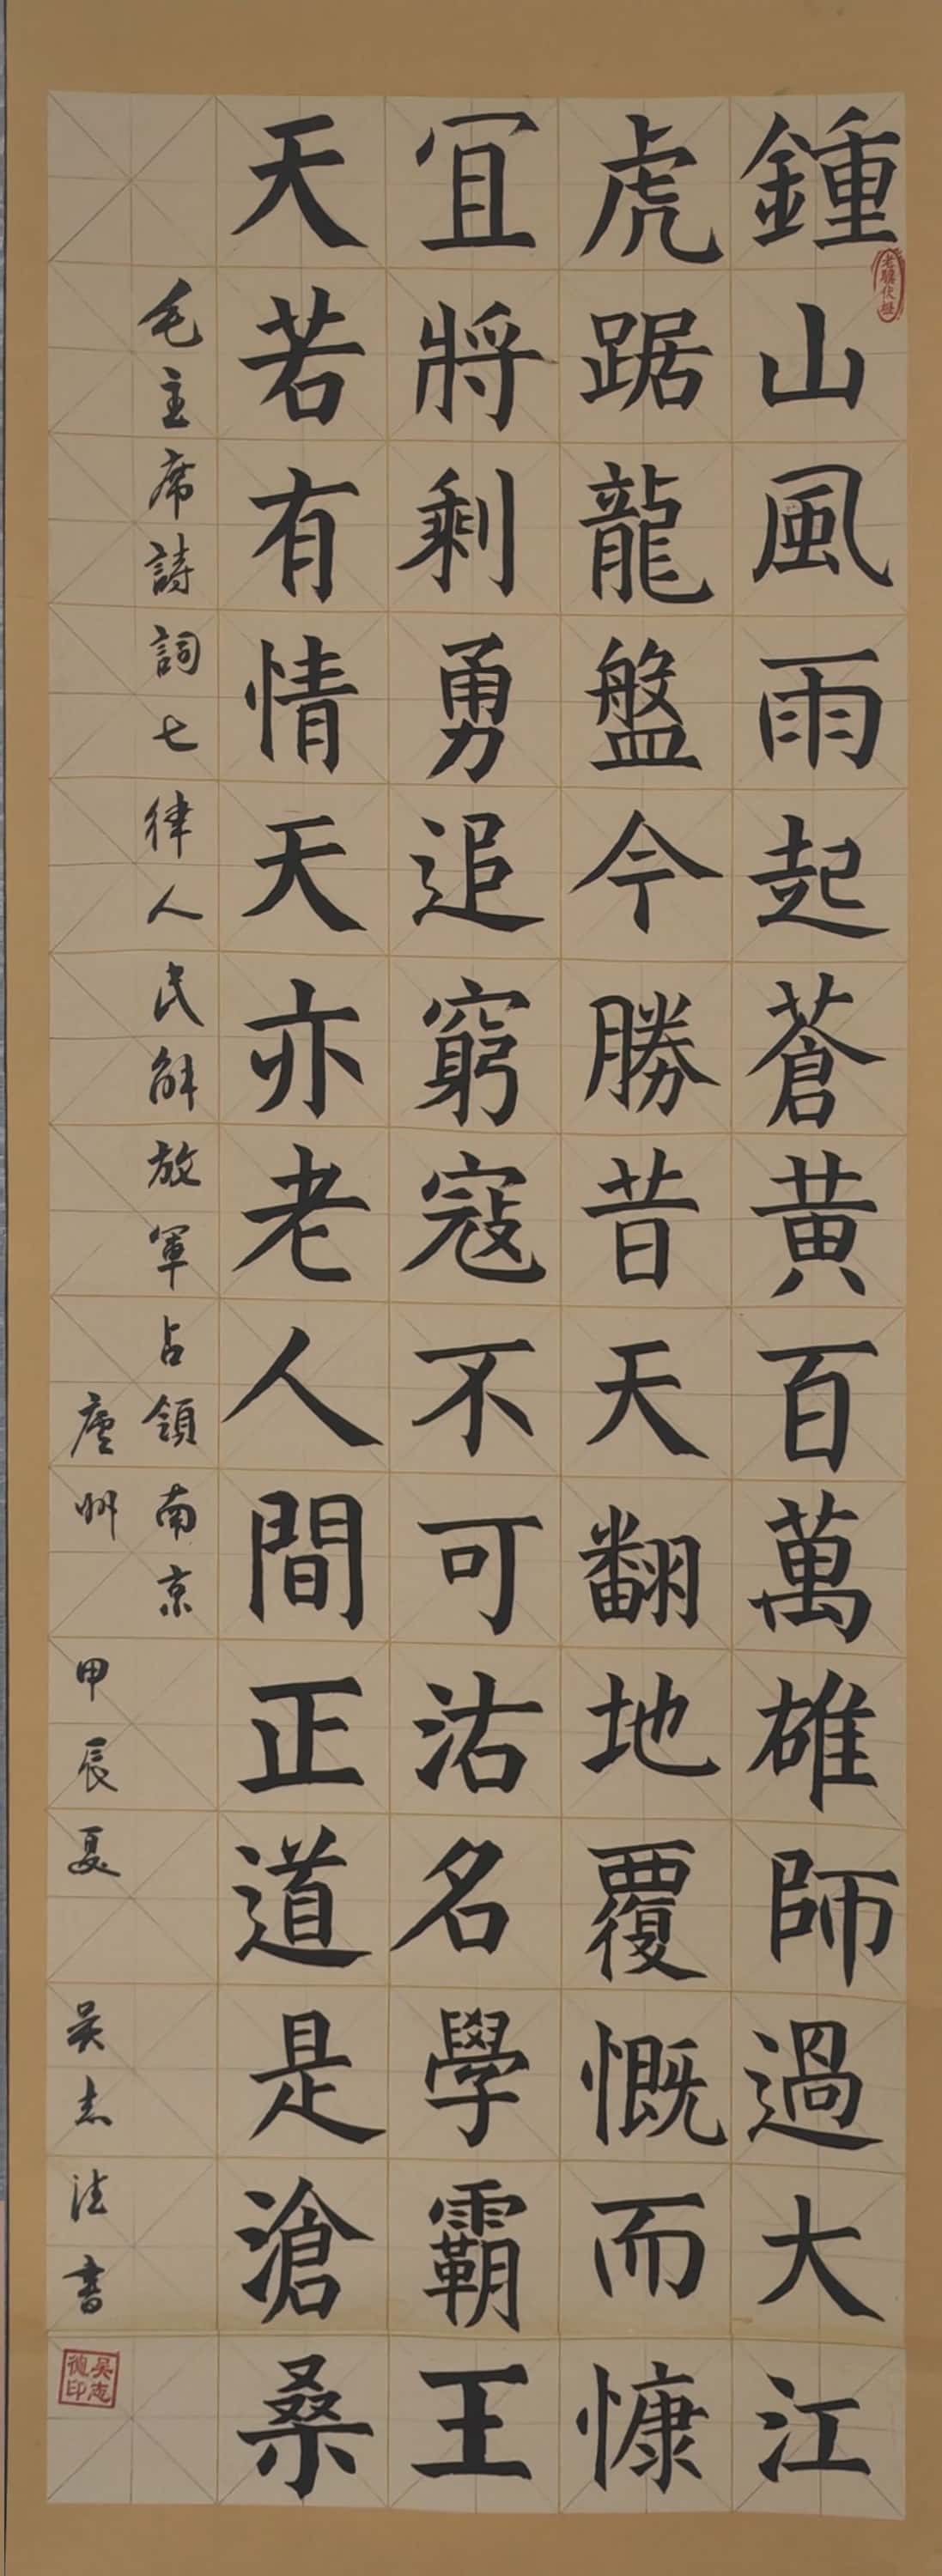 鍾山風雨起蒼黃百萬雄師過大江
虎踞龍盤今勝昔天翻地覆慨而慷
宜將剩勇追窮寇不可沽名學霸王
天若有情天亦老人間正道是滄桑
毛主席詩詞七律人民解放軍占領南京
廬州 甲辰夏 吳志德書
老驥伏櫪
吳志德印